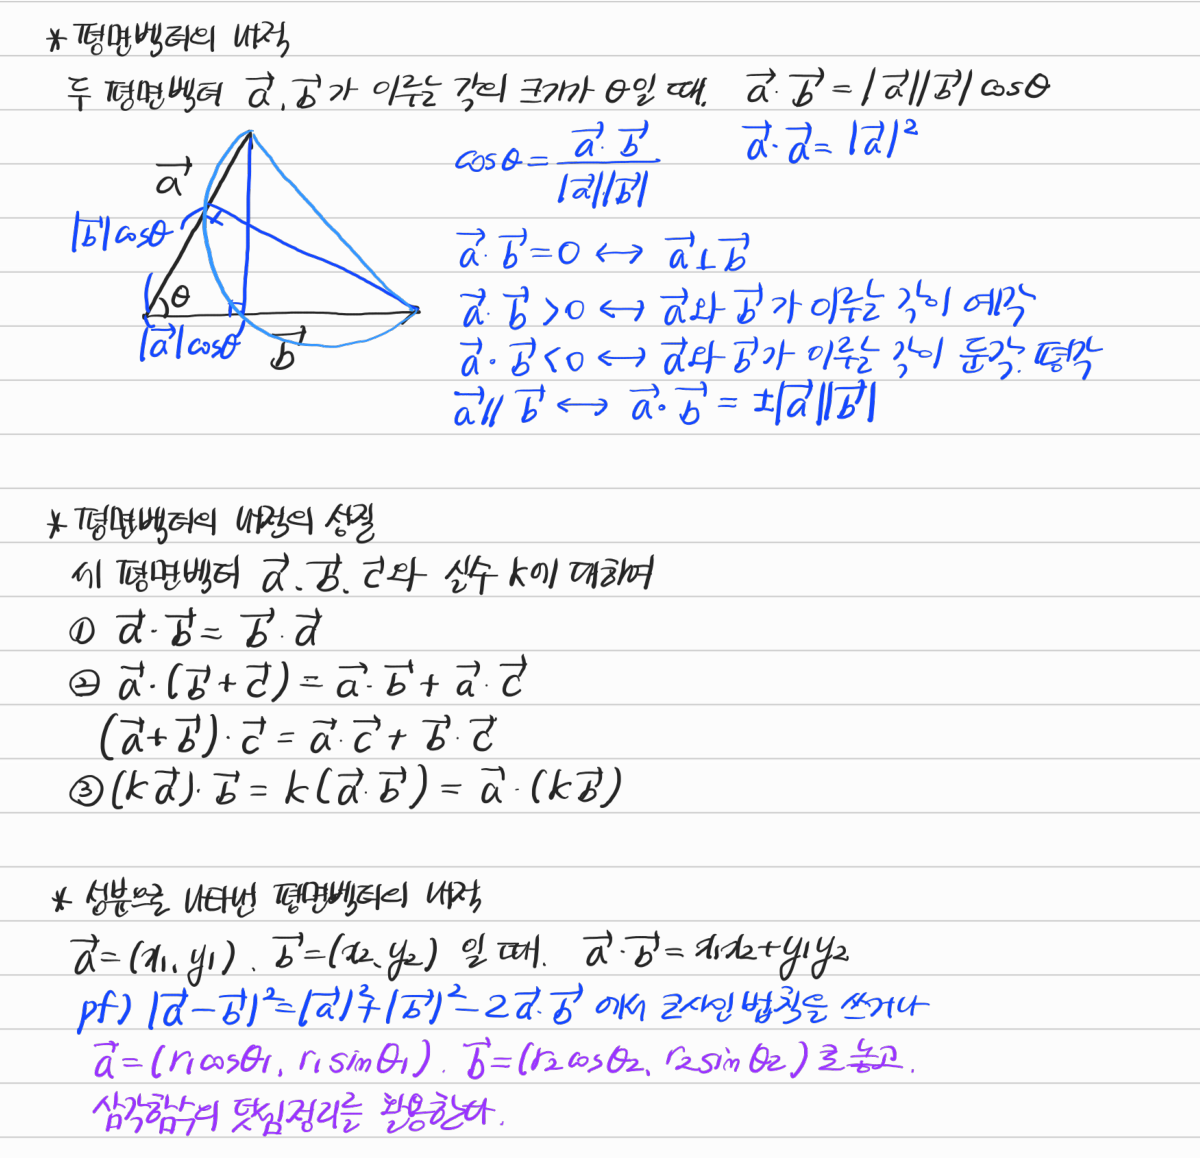 * 평면벡터의 내적
두 평면벡터 a⃗, b⃗가 이루는 각의 크기가 θ일 때, a⃗·b⃗ = |a⃗||b⃗| cosθ
cosθ = a⃗·b⃗ / |a⃗||b⃗|   a⃗·a⃗ = |a⃗|²
a⃗
|b⃗|cosθ
θ
|a⃗|cosθ
b⃗
a⃗·b⃗ = 0 ↔ a⃗⊥b⃗
a⃗·b⃗ > 0 ↔ a⃗와 b⃗가 이루는 각이 예각
a⃗·b⃗ < 0 ↔ a⃗와 b⃗가 이루는 각이 둔각, 평각
a⃗ // b⃗ ↔ a⃗·b⃗ = ±|a⃗||b⃗|
* 평면벡터의 내적의 성질
세 평면벡터 a⃗, b⃗, c⃗와 실수 k에 대하여
① a⃗·b⃗ = b⃗·a⃗
② a⃗·(b⃗+c⃗) = a⃗·b⃗ + a⃗·c⃗
(a⃗+b⃗)·c⃗ = a⃗·c⃗ + b⃗·c⃗
③ (ka⃗)·b⃗ = k(a⃗·b⃗) = a⃗·(kb⃗)
* 성분으로 나타낸 평면벡터의 내적
a⃗=(x₁, y₁), b⃗=(x₂, y₂) 일 때, a⃗·b⃗ = x₁x₂+y₁y₂
pf) |a⃗-b⃗|²=|a⃗|²+|b⃗|²-2a⃗·b⃗ 에서 코사인 법칙을 쓰거나
a⃗=(r₁cosθ₁, r₁sinθ₁), b⃗=(r₂cosθ₂, r₂sinθ₂)로 놓고,
삼각함수의 덧셈정리를 활용한다.